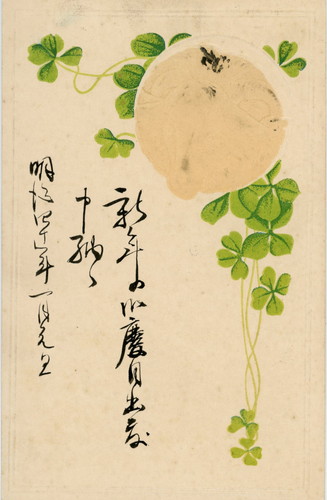 新年の御慶目出度
申納候
明治四十年一月元旦